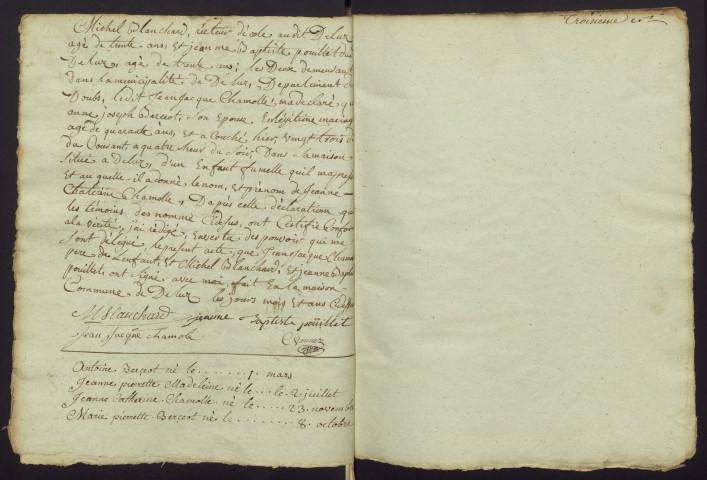 Michel Blanchard, recteur d'école audit Deluz
agé de trente ans, Et jeanne Baptiste pouillet dud
Deluz, agé de trente ans; les Deux demeurant
dans la municipalité de Deluz, Departement du
Doubs, ledit Jean Jacque Chamolle, ma declaré, que
anne joseph Bercot, Son Epouse En légitime mariage
agé de quarante ans, Et a couché hier, vingt trois du
du Courant, a quatre heur du Soir, Dans Sa maison
Situé a deluz, d'un Enfant fumelle quil ma pres
Et au quelle il a donné le nom, Et prénom de Jeanne
Chaterine Chamolle, Dapiès cette déclaration que
les témoins des nommé Cidesus, ont Certifié Conform
ala vérité, j'ai rédigé, En vertu des pouvoir qui me
Sont délégué, le present acte, que Jean Jacque Chamo
pere de L'enfant, Et Michel Blanchard, Et jeanne Baptis
pouillet, ont Signé avec moi, fait En la maison
Commune de Deluz les jours mois Et ans Cidesus
M Blanchard jeanne Baptiste poüillet
Jean Jacque chamole
Antoine Berçot né le ........ 1. mars
Jeanne pierrette Madeleine né le .. le 2 juillet
Jeanne Catherine Chamolle né le .... 23 novembre
Marie pierrette Berçot nés le .... 8. octobre
Troisieme